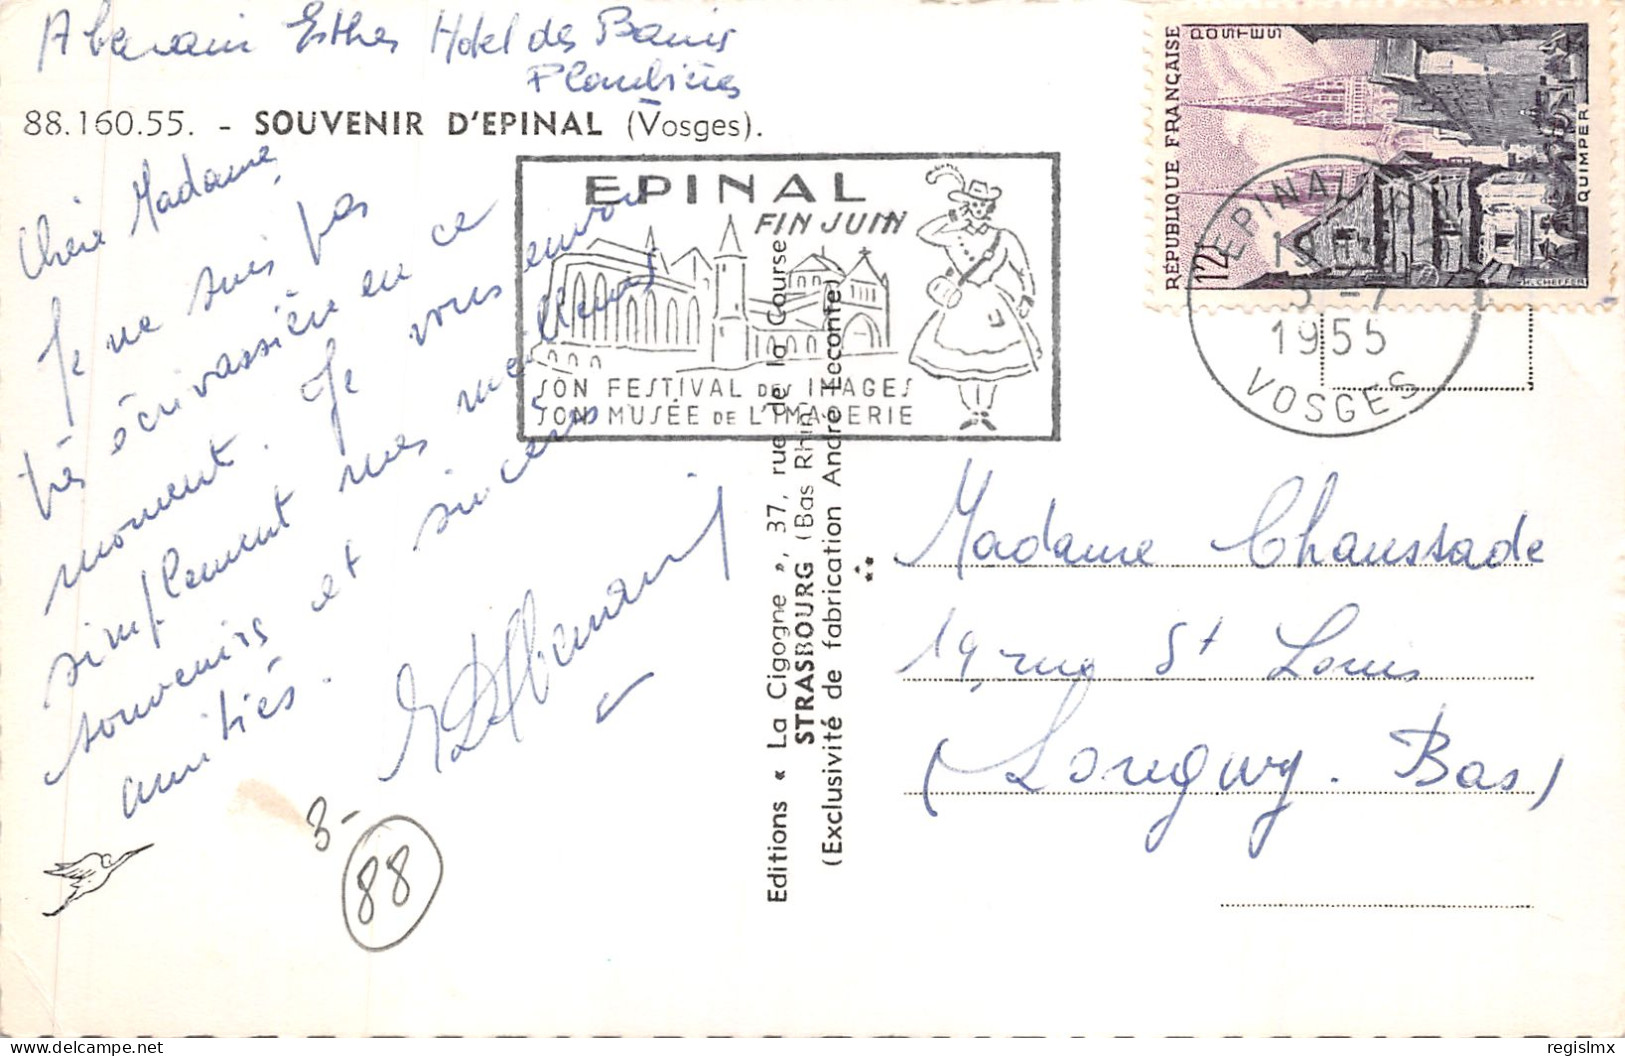 Esther Hotel des Bains
Plombières
88.160.55. - SOUVENIR D'EPINAL (Vosges).
Chère Madame
Je ne suis pas
très écrivassière en ce
moment. Je vous envoie
simplement mes meilleurs
souvenirs et sincères
amitiés.
3-
88
EPINAL
FIN JUIN
SON FESTIVAL DES IMAGES
SON MUSÉE DE L'IMAGERIE
Editions « La Cigogne », 37, rue de la Course
STRASBOURG (Bas Rhin)
(Exclusivité de fabrication André Leconte)
RÉPUBLIQUE FRANÇAISE
POSTES
12F
QUIMPER
CHEFFER
EPINAL
1955
VOSGES
Madame Chaussade
19, rue St Louis
(Longwy. Bas)
regislmx